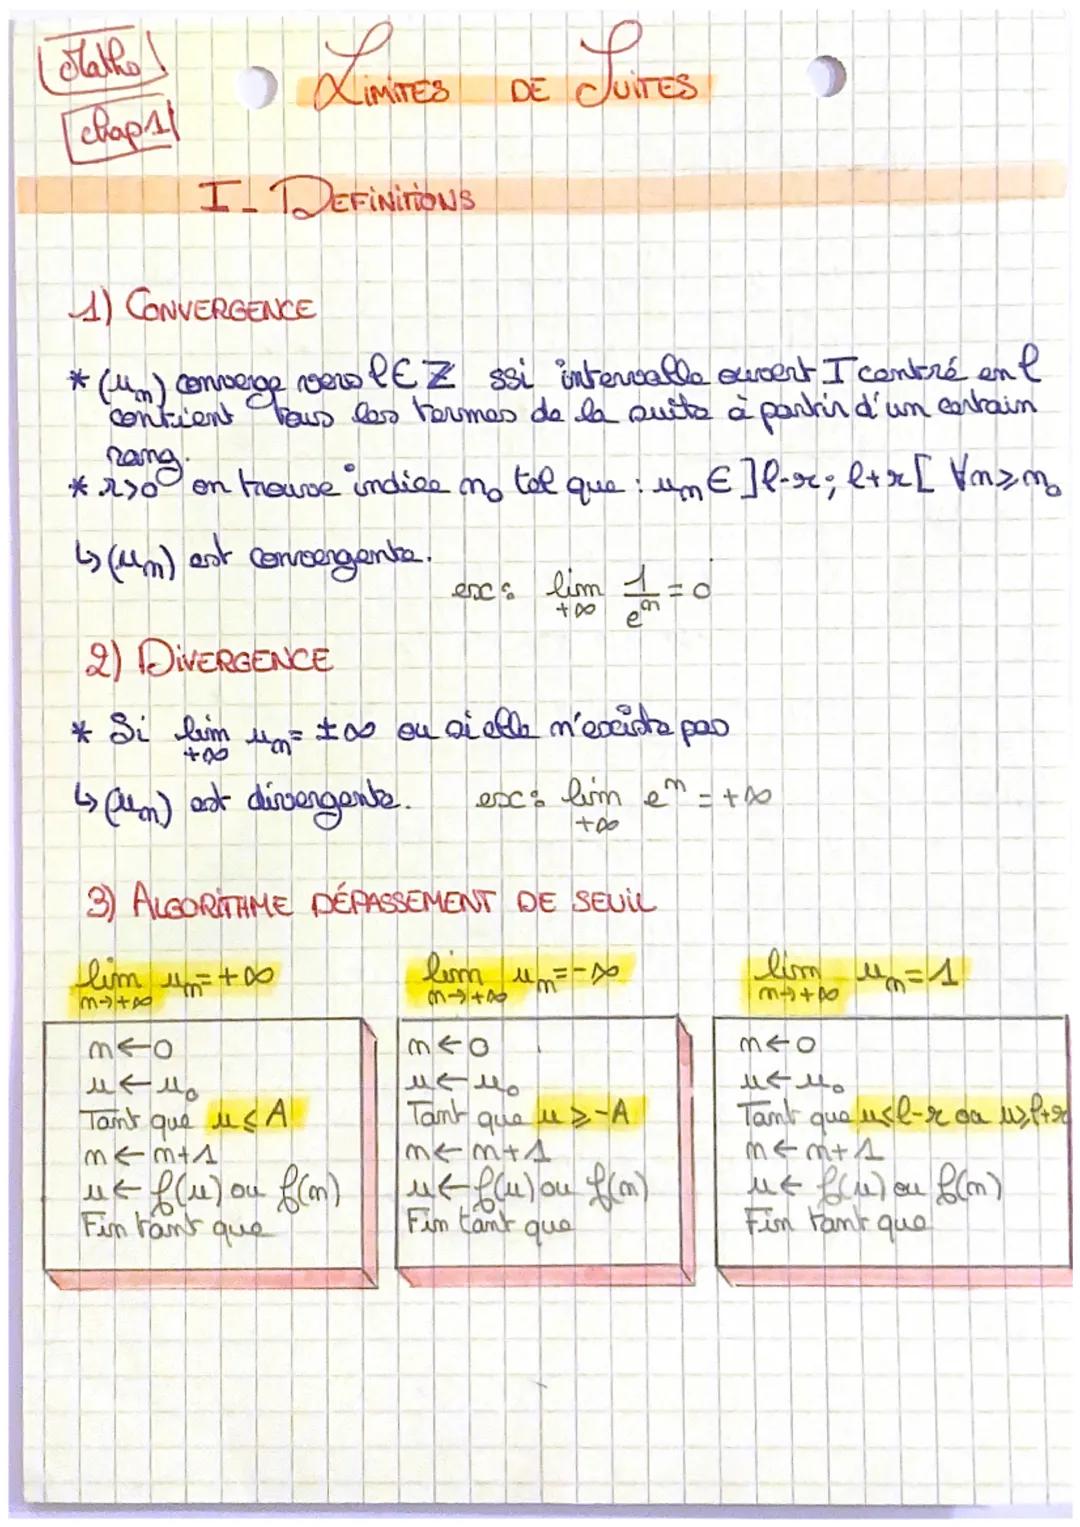 Maths
chap 1
LIMITES DE SUITES
I - DEFINITIONS
1) CONVERGENCE
* (un) converge vers l ∈ Z ssi intervalle ouvert I centré en l
contient tous les termes de la suite à partir d'un certain
rang.
* r>0 on trouve indice n₀ tel que : un ∈ ]l-r; l+r[ ∀n≥n₀
↳ (un) est convergente.
ex: lim 1/eⁿ = 0
+∞
2) DIVERGENCE
* Si lim un = ±∞ ou si elle n'existe pas
+∞
↳ (un) est divergente. ex: lim eⁿ = +∞
+∞
3) ALGORITHME DÉPASSEMENT DE SEUIL
lim un = +∞
n→+∞
n ← 0
u ← u₀
Tant que u ≤ A
n ← n+1
u ← f(u) ou f(n)
Fin tant que
lim un = -∞
n→+∞
n ← 0
u ← u₀
Tant que u ≥ -A
n ← n+1
u ← f(u) ou f(n)
Fin tant que
lim un = 1
n→+∞
n ← 0
u ← u₀
Tant que u≤l-r ou u≥l+r
n ← n+1
u ← f(u) ou f(n)
Fin tant que